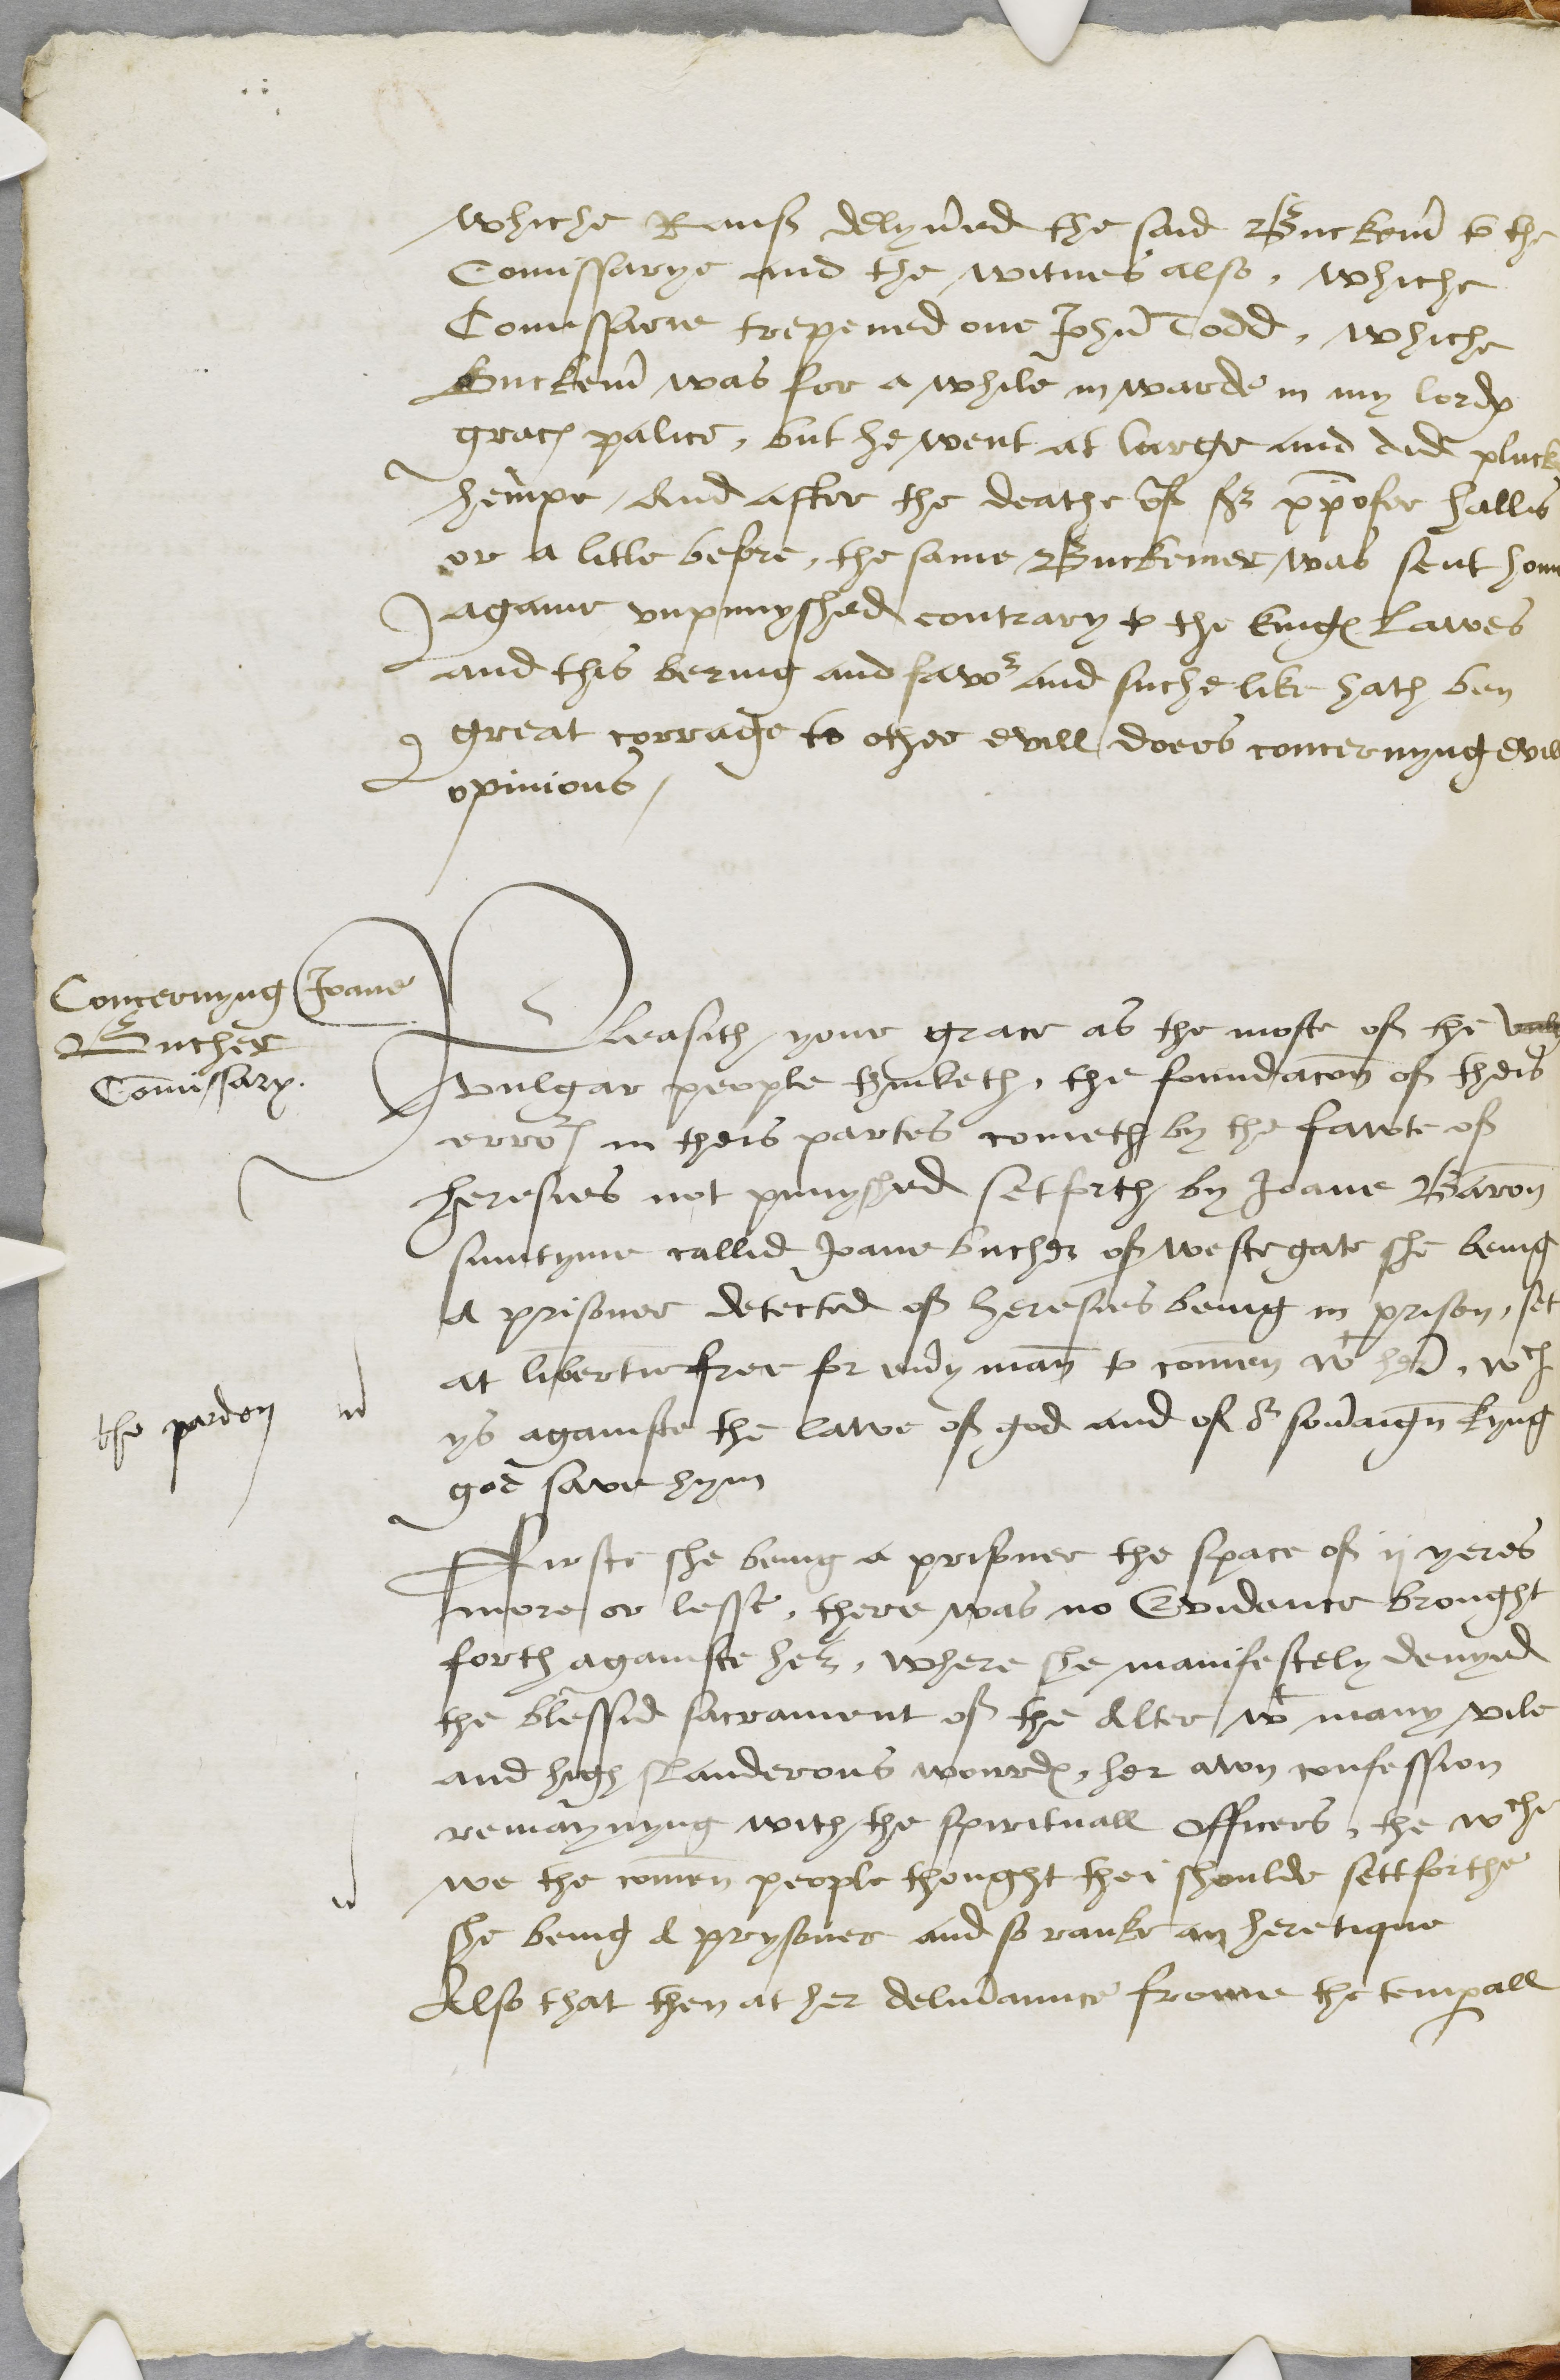 whiche Ramsß delyued the said Buckem to the
Comissarye and the witnes also, whiche
Comissarie trepened one John Todd, whiche
Buckem was for a while in warde in my lordꝭ
gracꝭ palice, but he went at large and did pluck
hempe / And after the deathe of sr xpofer hallis
or a litle befre, the same Buckemer was sent home
agayne vnpunyshed contrary to the kingꝭ lawes
and this bering and favor and suche like hath ben
great corrage to other evill doers concernyng evill
opinions /
Concernyng Joane
Bucher
Comissary.
Pleasith your grace as the moste of the
vulgar people thinketh, the foundacon of theis
errorꝭ in theis partes cometh by the fawte of
heresies not punyshed set forth by Joane Baron
sumtyme callid Joane bucher of westegate she being
a prisoner detected of heresies being in prison, set
at libertie free for eu'y man to comen wt her, wch
the pardon
ys againste the lawe of god and of or sou'aign kyng
god save hym
Firste she being a prisoner the space of ij yeres
more or lesse, there was no Evidence brought
forth againste her, where she manifestely denyed
the blessid sacrament of the Alter wt many vile
and high slanderous wourdꝭ, her awn confession
remaynyng with the spirituall officers, the wche
we the comen people thought thei shoulde sett forthe
she being a prysoner and so ranke an heretique
Also that then at her deliu'aunce frome the temp̱all